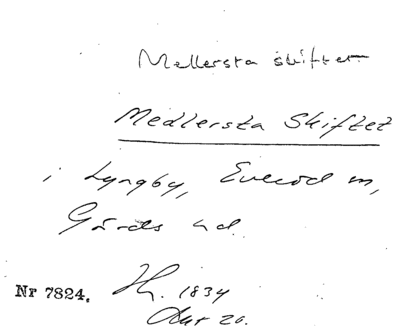 Mellersta skiftet
Medlersta Skiftet
i Lyngby, Everöd m,
Gärds hd.
Nr 7824. 1834
26.